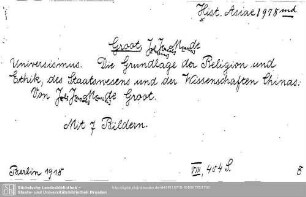 Hist. Asiae 1978 md
Groot
Universismus. Die Grundlage der Religion und
Ethik, des Staatswesens und der Wissenschaften Chinas.
Von Groot.
Mit 7 Bildern.
Berlin 1918 VIII, 404 S. 8
Sächsische Landesbibliothek -
Staats- und Universitätsbibliothek Dresden